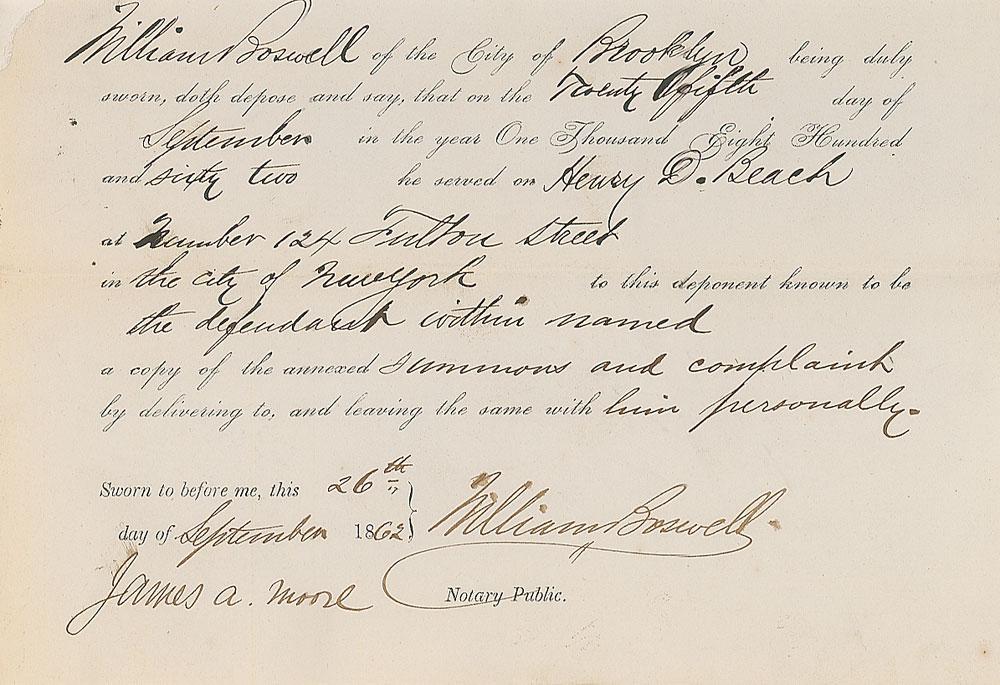 William Boswell of the City of Brooklyn being duly
sworn, doth depose and say, that on the Twenty fifth day of
September in the year One Thousand Eight Hundred
and sixty two he served on Henry D. Beach
at Number 124 Fulton Street
in the city of New York to this deponent known to be
the defendant within named
a copy of the annexed summons and complaint
by delivering to, and leaving the same with him personally.
Sworn to before me, this 26th
day of September 1862
William Boswell
James A. Moore Notary Public.